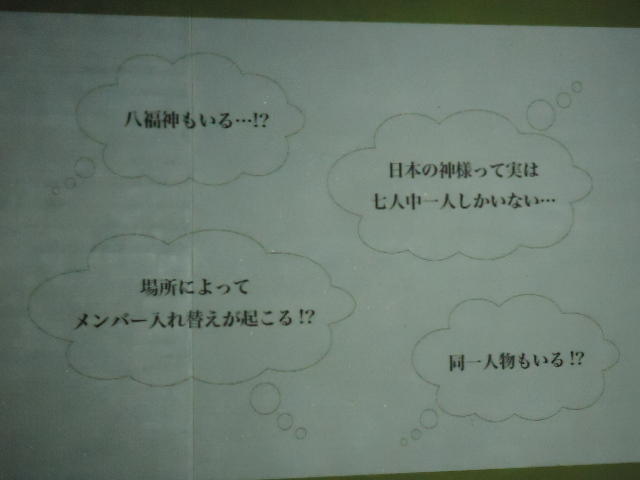 八福神もいる…!?
日本の神様って実は
七人中一人しかいない…
場所によって
メンバー入れ替えが起こる!?
同一人物もいる!?